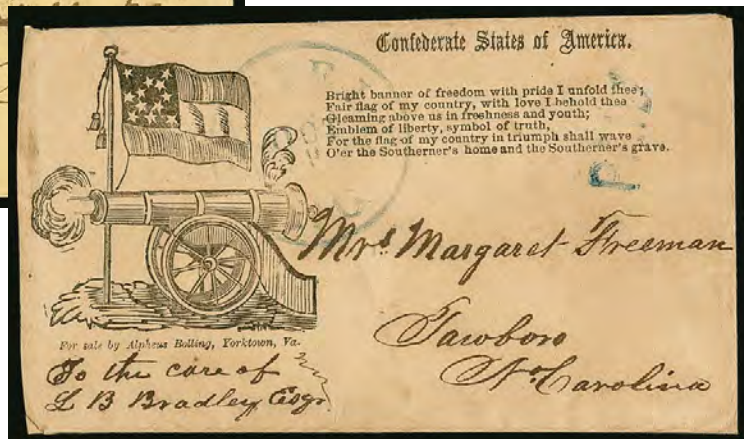 Confederate States of America.
Bright banner of freedom with pride I unfold thee;
Fair flag of my country, with love I behold thee
Gleaming above us in freshness and youth;
Emblem of liberty, symbol of truth,
For the flag of my country in triumph shall wave
O'er the Southerner's home and the Southerner's grave.
Mrs Margaret Freeman
Tawboro
No. Carolina
For sale by Alpheus Bolling, Yorktown, Va.
To the care of
L B Bradley Esqr